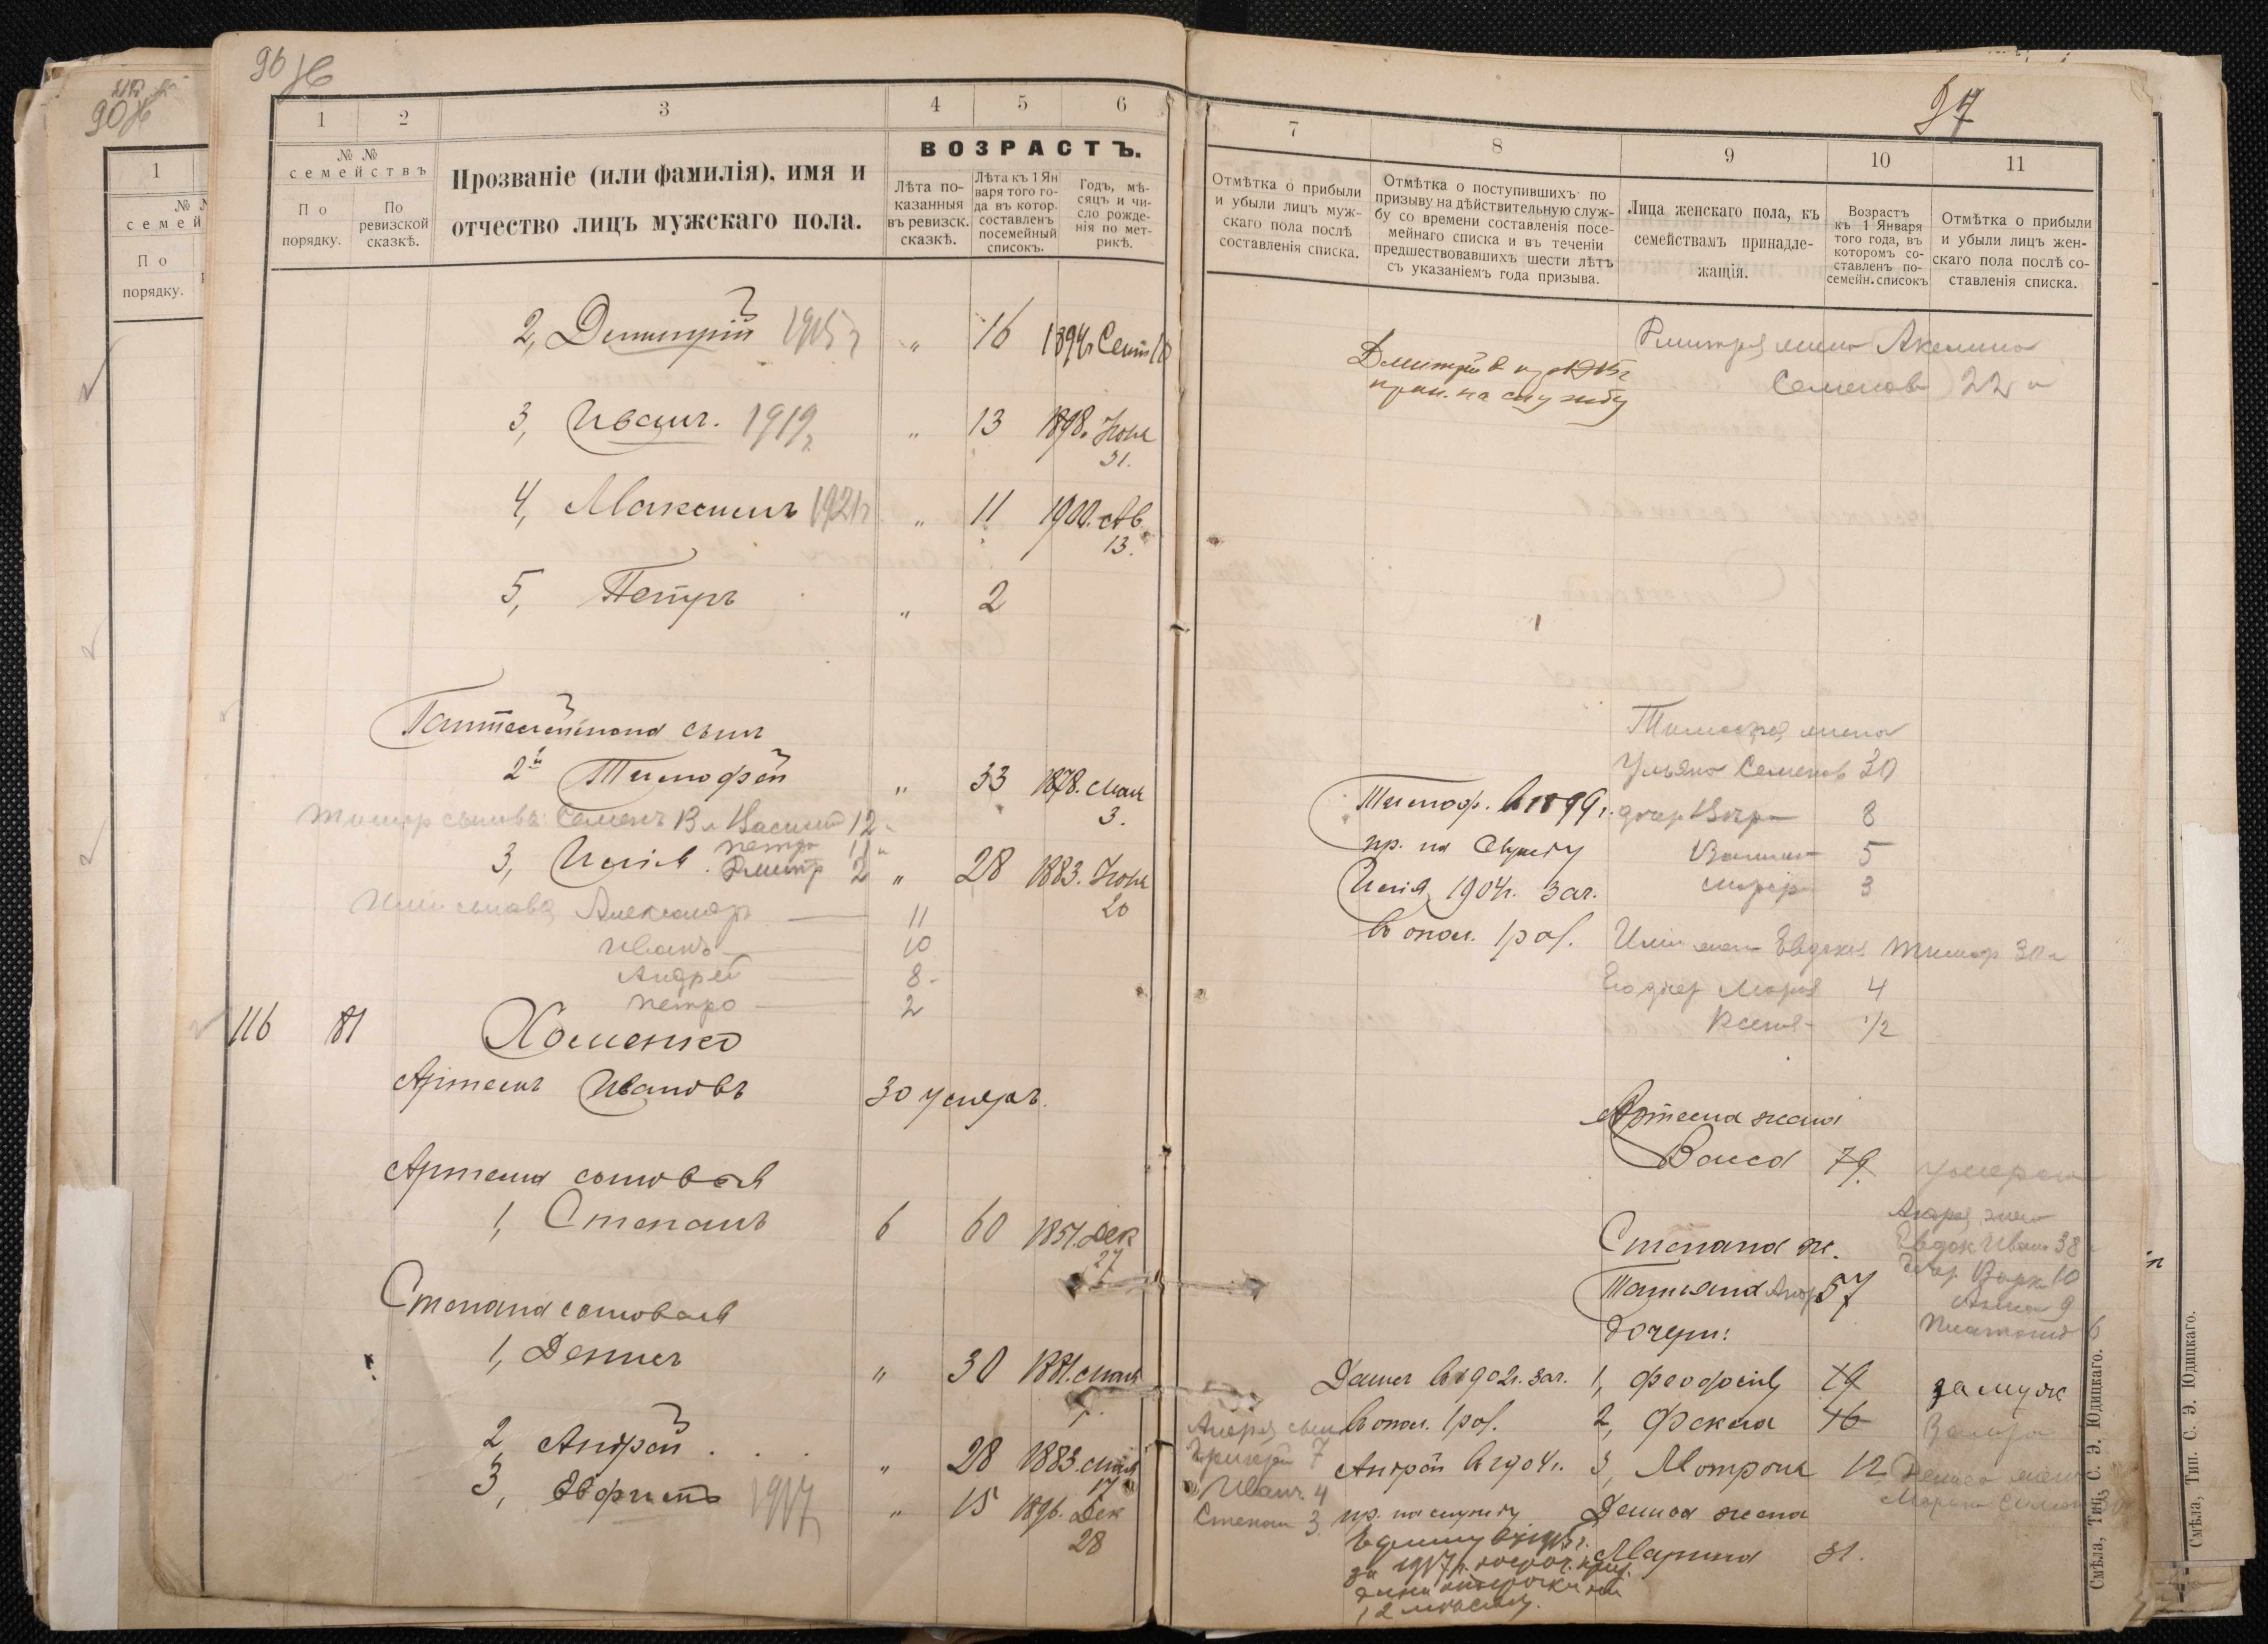 96
97
1
2
3
4
5
6
№ №
семействъ
По порядку.
По ревизской сказкѣ.
Прозваніе (или фамилія), имя и
отчество лицъ мужскаго пола.
ВОЗРАСТЪ.
Лѣта по-
казанныя
въ ревизск.
сказкѣ.
Лѣта къ 1 Ян
варя того го-
да въ котор.
составленъ
посемейный
списокъ.
Годъ, мѣ-
сяцъ и чи-
сло рожде-
нія по мет-
рикѣ.
2, Димитрій 1915 г " 16 1894 Сент 10
3, Иванъ. 1919 " 13 1898. Іюля
31.
4, Максимъ 1921 г " 11 1900. Ав.
13.
5, Петръ " 2
Пантелеймона сынъ
2й Тимофей " 33 1878. Мая
3.
Тимоф сыновья Семенъ 13 л Василий 12
Петро 11
3, Илія Дмитр 2 " 28 1883. Іюля
20
Илии сыновья Александръ 11
Иванъ 10
Андрей 8
Петро 2
116 81 Хоменко
Артемъ Ивановъ 30 умеръ.
Артема сыновья
1, Степанъ 6 60 1851. Дек
27
Степана сыновья
1, Денисъ " 30 1881. Мая
2, Андрей " 28 1883. Мая
17
3, Евфимъ 1917 " 15 1896. Дек
28
7
8
9
10
11
Отмѣтка о прибыли
и убыли лицъ муж-
скаго пола послѣ
составленія списка.
Отмѣтка о поступившихъ по
призыву на дѣйствительную служ-
бу со времени составленія посе-
мейнаго списка и въ теченіи
предшествовавшихъ шести лѣтъ
съ указаніемъ года призыва.
Лица женскаго пола, къ
семействамъ принадле-
жащія.
Возрастъ
къ 1 Января
того года, въ
которомъ со-
ставленъ по-
семейн. списокъ
Отмѣтка о прибыли
и убыли лицъ жен-
скаго пола послѣ со-
ставленія списка.
Дмитрія жена Акелина
Семенов 22
Дмитрій 1915 г
прин. на службу
Тимофея жена
Ульяна Семенов 30
Тимоф. в 1899 г. дочер 8
пр. на службу 5
Илія 1904 г. зач. 3
в опол. 1 раз.
Илии жена Евдокия Тимоф 30
Его дочер Мария 4
Ксения 1/2
Артема жена
Васса 79. умерла
Степана ж.
Татьяна 57
дочери:
Андрея жена
Евдок Иван 38
Варк 10
9
6
Денис в 1902 г. зач. 1, Феодосія 19 замуж
в опол. 1 раз. 2, Фекла 16
Андрей в 1904 г. 3, Мотрона 12
пр. на службу
Андрея сын
Григорий 7
Иванъ 4
Степан 3
Дениса жена
Марина 31.
12 месяц.
Дениса жена
Смѣла, Тип. С. Э. Юдицкаго.
90
1
По
порядку.
Смѣла, Тип. С. Э. Юдицкаго.